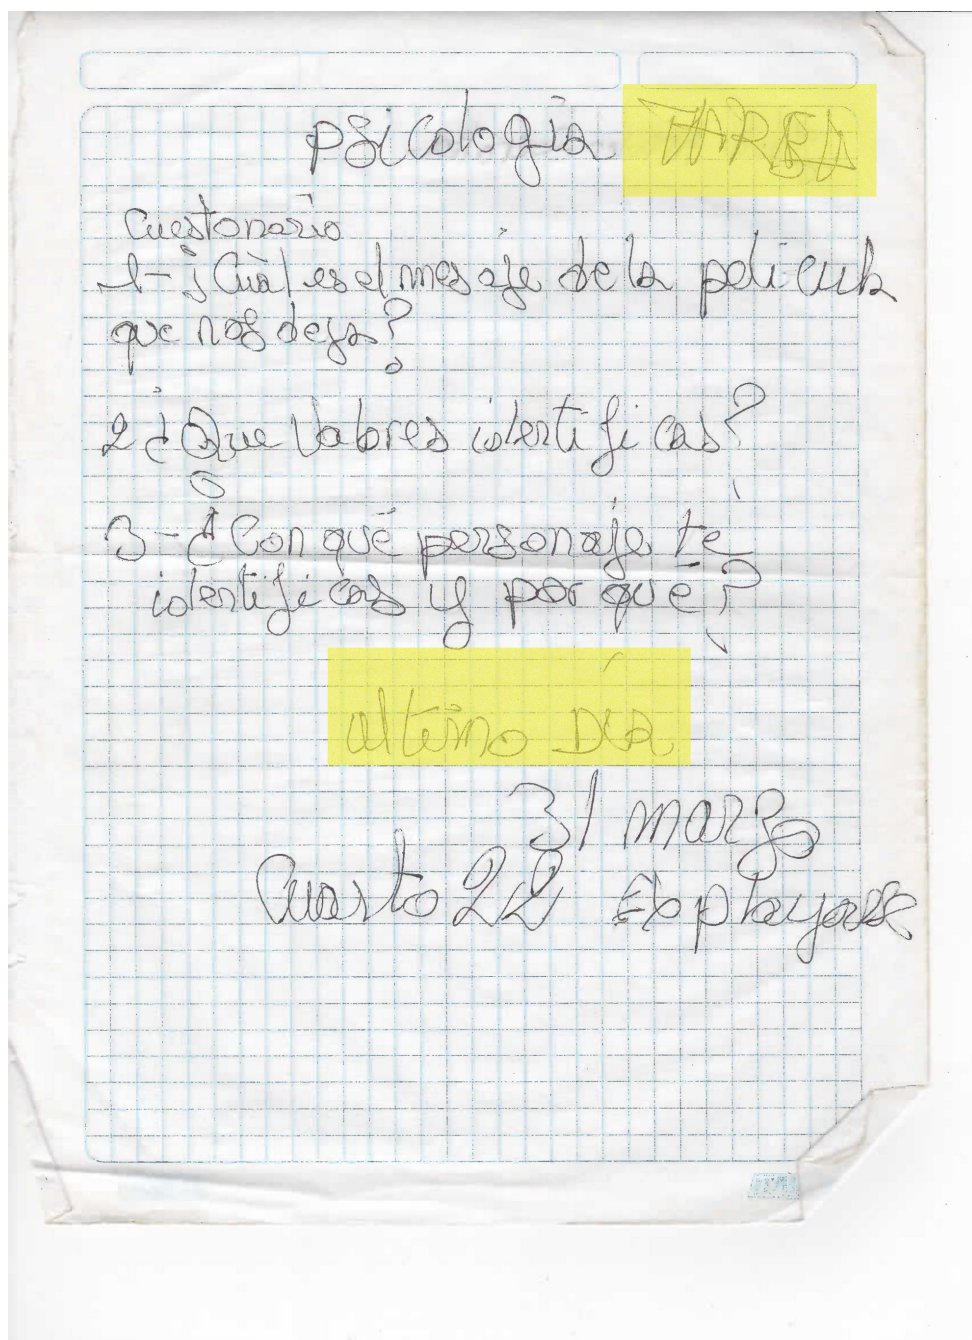 psicologia TAREA
Cuestonario
1- ¿Cuál es el mesaje de la pelicula
que nos deja?
2 ¿Que Valores identificas?
3- ¿Con qué personaje te
identificas y por qué?
ultimo Día
31 marzo
Cuarto 22 Explayarse